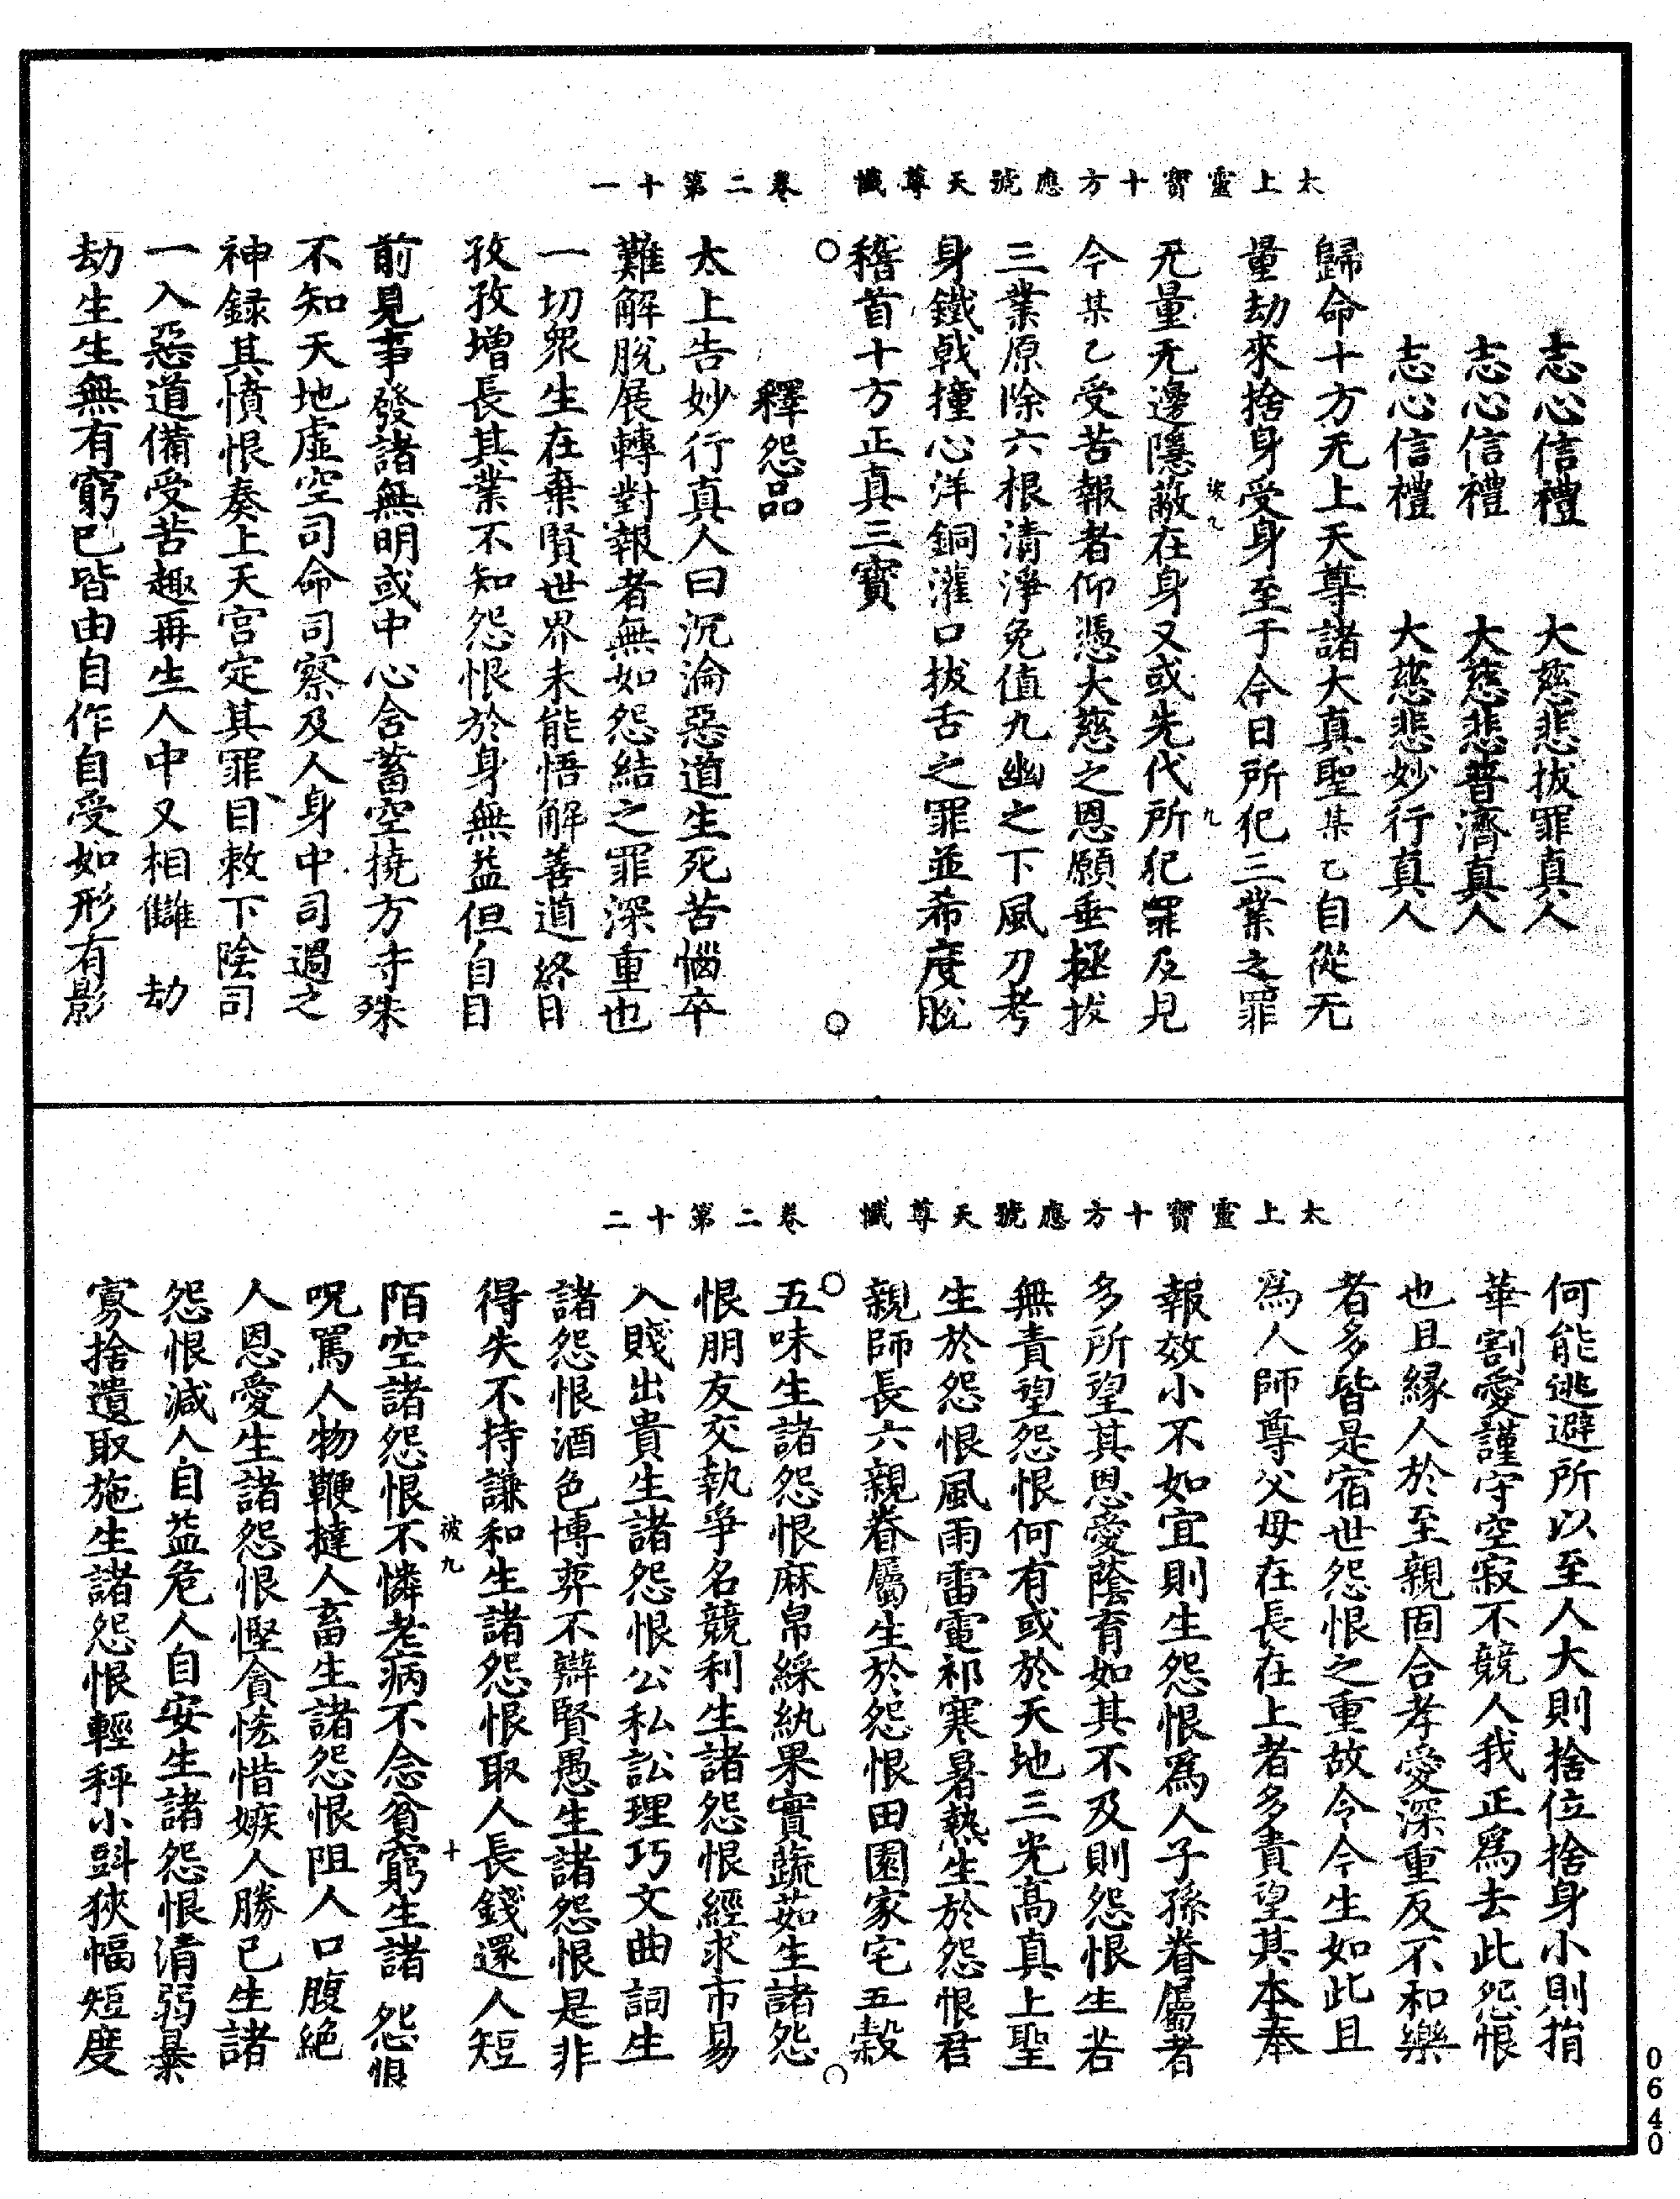 太上靈寶十方應號天尊懺　卷二第十一
志心信禮　大慈悲拔罪真人
志心信禮　大慈悲普濟真人
志心信禮　大慈悲妙行真人
歸命十方无上天尊諸大真聖某乙自從无
量劫來捨身受身至于今日所犯三業之罪
被九　九
无量无邊隱蔽在身又或先代所犯罪及見
今某乙受苦報者仰憑大慈之恩願垂拯拔
三業原除六根清淨免值九幽之下風刀考
身鐵戟撞心洋銅灌口拔舌之罪並希度脫
稽首十方正真三寶
釋怨品
太上告妙行真人曰沉淪惡道生死苦惱卒
難解脫展轉對報者無如怨結之罪深重也
一切衆生在棄賢世界未能悟解善道終日
孜孜增長其業不知怨恨於身無益但自目
前見事發諸無明或中心含蓄空撓方寸殊
不知天地虛空司命司察及人身中司過之
神録其憤恨奏上天宮定其罪目敕下陰司
一入惡道備受苦趣再生人中又相讎　劫
劫生生無有窮已皆由自作自受如形有影
太上靈寶十方應號天尊懺　卷二第十二
何能逃避所以至人大則捨位捨身小則捐
華割愛謹守空寂不競人我正爲去此怨恨
也且緣人於至親固合孝愛深重反不和樂
者多皆是宿世怨恨之重故令今生如此且
爲人師尊父母在長在上者多責望其本奉
報效小不如宜則生怨恨爲人子孫眷屬者
多所望其恩愛蔭育如其不及則怨恨生若
無責望怨恨何有或於天地三光高真上聖
生於怨恨風雨雷電祁寒暑熱生於怨恨君
親師長六親眷屬生於怨恨田園家宅五穀
五味生諸怨恨麻帛綵紈果實蔬茹生諸怨
恨朋友交執爭名競利生諸怨恨經求市易
入賤出貴生諸怨恨公私訟理巧文曲詞生
諸怨恨酒色博弈不辯賢愚生諸怨恨是非
得失不持謙和生諸怨恨取人長錢還人短
被九　十
陌空諸怨恨不憐老病不念貧窮生諸　怨恨
呪罵人物鞭撻人畜生諸怨恨阻人口腹絶
人恩愛生諸怨恨慳貪恡惜嫉人勝己生諸
怨恨減人自益危人自安生諸怨恨清弱暴
寡捨遺取施生諸怨恨輕秤小㪷狹幅短度
0640